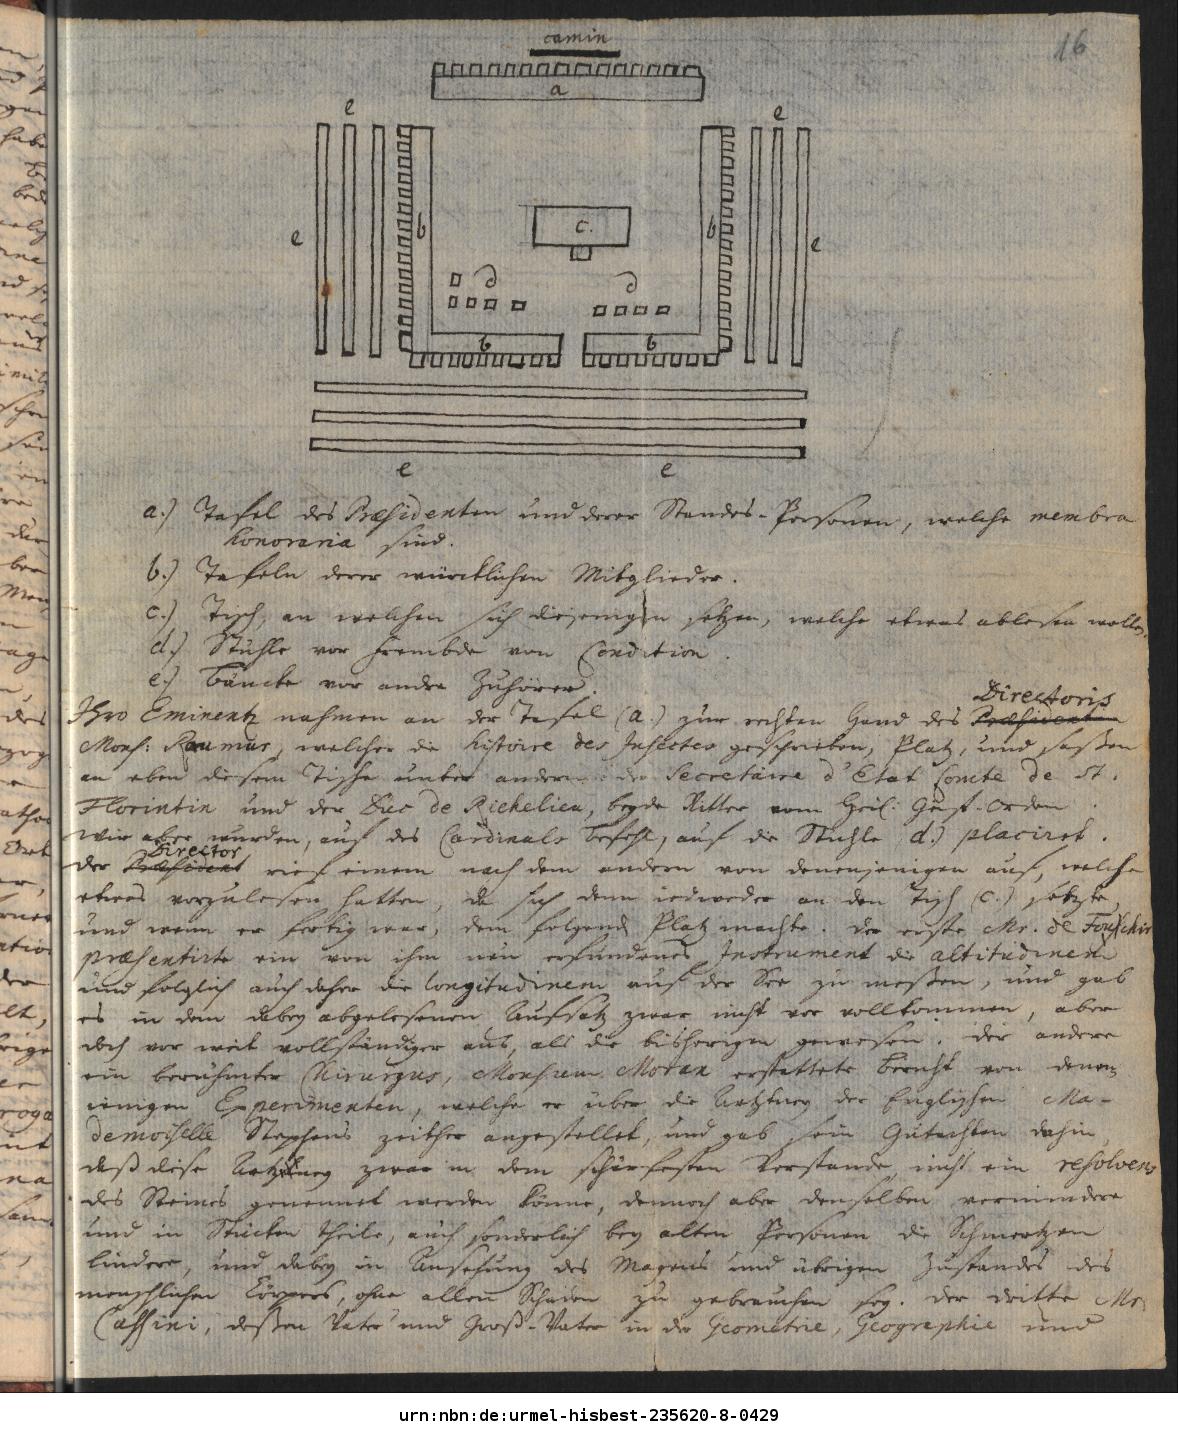 16
camin
a
e
e
b
b
c.
e
e
d
d
b
b
e
e
a.) Tafel des Præsidenten und derer Standes-Personen, welche membra
honoraria sind.
b.) Tafeln derer würcklichen Mitglieder.
c.) Tisch, an welchen sich diejenigen setzen, welche etwas ablesen wollen.
d.) Stühle vor frembde von Condition.
e.) Bäncke vor andre Zuhörer.
Directoris
Ihro Eminentz nahmen an der Tafel (a.) zur rechten Hand des Præsidenten
Mons: Raumur, welcher die histoire des Insectes geschrieben, Platz, und saßen
an eben diesem Tische unter andern der Secretaire d'Etat Comte de St.
Florintin und der Duc de Richelieu, beyde Ritter vom Heil: Geist-Orden.
Wir aber wurden, auf des Cardinals Befehl, auf die Stühle (d.) placiret.
Director
der Præsident rief einem nach dem andern von denenjenigen auf, welche
etwas vorzulesen hatten, da sich denn iedweder an den Tisch (c.) setzte,
und wenn er fertig war, dem folgenden Platz machte. Der erste Mr. de
præsentirte ein von ihm neu erfundenes Instrument die altitudinem
und folglich auch daher die longitudinem auf der See zu meßen, und gab
es in dem dabey abgelesenen Aufsatz zwar nicht vor vollkommen, aber
doch vor weit vollständiger aus, als die bißherigen gewesen. Der andere
ein berühmter Chirurgus, Monsieur Moran erstattete Bericht von denen-
ienigen Experimenten, welche er über die Artzney der Englischen Ma-
demoiselle Stephens zeither angestellet, und gab sein Gutachten dahin,
daß diese Artzney zwar in dem schärfesten Verstande, nicht ein resolvens
des Steines genennet werden könne, dennoch aber denselben vermindere
und in Stücken theile, auch sonderlich bey alten Personen die Schmertzen
lindere, und dabey in Ansehung des Magens und übrigen Zustandes des
menschlichen Cörpers, ohne allen Schaden zu gebrauchen sey. Der dritte Mr.
Cassini, deßen Vater und Groß-Vater in der Geometrie, Geographie und
urn:nbn:de:urmel-hisbest-235620-8-0429